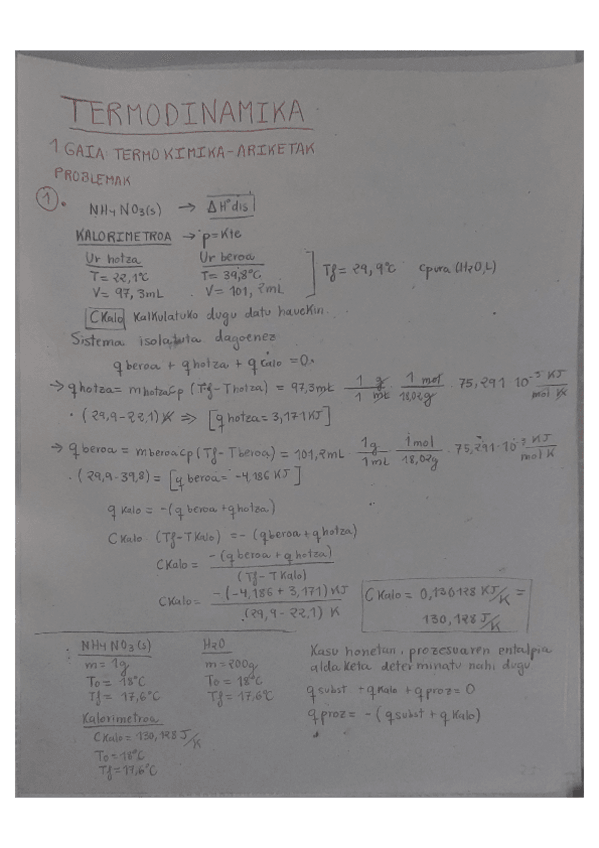 TERMODINAMIKA
1 GAIA: TERMOKIMIKA-ARIKETAK
PROBLEMAK
1. NH4NO3(s) → ΔH°dis
KALORIMETROA → p=Kte
Ur hotza Ur beroa
T=22,1°C T=39,8°C Tf=29,9°C Cpura (H2O,L)
V=97,3mL V=101,2mL
CKalo Kalkulatuko dugu datu hauekin.
Sistema isolatuta dagoenez
qberoa + qhotza + qkalo =0.
→ qhotza= mhotza Cp (Tf-Thotza) = 97,3mL 1 g/1 mL 1 mol/18,02g · 75,291 · 10⁻³ KJ/mol K
· (29,9-22,1)K ⇒ [qhotza=3,171KJ]
→ qberoa = mberoa Cp (Tf-Tberoa) = 101,2mL 1g/1mL 1mol/18,02g · 75,291 · 10⁻³ KJ/mol K
· (29,9-39,8) = [qberoa= -4,186 KJ]
qKalo = -(qberoa+qhotza)
CKalo · (Tf-TKalo) = -(qberoa+qhotza)
CKalo= -(qberoa+qhotza)/(Tf-TKalo)
CKalo= -(-4,186 + 3,171) KJ/(29,9-22,1) K
CKalo = 0,130128 KJ/K =
130,128 J/K
NH4NO3(s) H2O
m=1g m=200g
To=18°C To=18°C
Tf=17,6°C Tf=17,6°C
Kalorimetroa
CKalo=130,128 J/K
To=18°C
Tf=17,6°C
Kasu honetan, prozesuaren entalpia
aldaketa determinatu nahi dugu
qsubst + qKalo + qproz = 0
qproz = -(qsubst + qKalo)